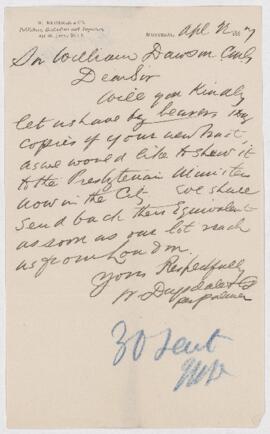 W. DRYSDALE & Co.
Publishers, Booksellers and Importers
232 ST. JAMES ST.
MONTREAL, Apl
Sir William Dawson
Dear Sir
Will you Kindly
let us have by bearer
copies of your new tract,
as we would like to show it
to the Presbyterian Ministers
now in the City We shall
send back their Equivalent
as soon as our lot reach
us from London.
Yours Respectfully
W Drysdale & Co
per
30 sent